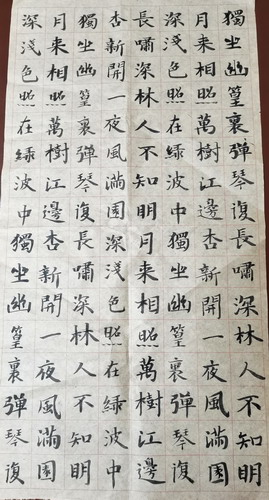 獨坐幽篁裏彈琴復長嘯深林人不知明
月來相照萬樹江邊杏新開一夜風滿園
深淺色照在綠波中獨坐幽篁裏彈琴復
長嘯深林人不知明月來相照萬樹江邊
杏新開一夜風滿園深淺色照在綠波中
獨坐幽篁裏彈琴復長嘯深林人不知明
月來相照萬樹江邊杏新開一夜風滿園
深淺色照在綠波中獨坐幽篁裏彈琴復